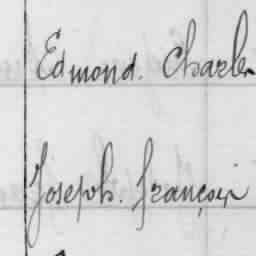 Edmond. Charles
Joseph. François